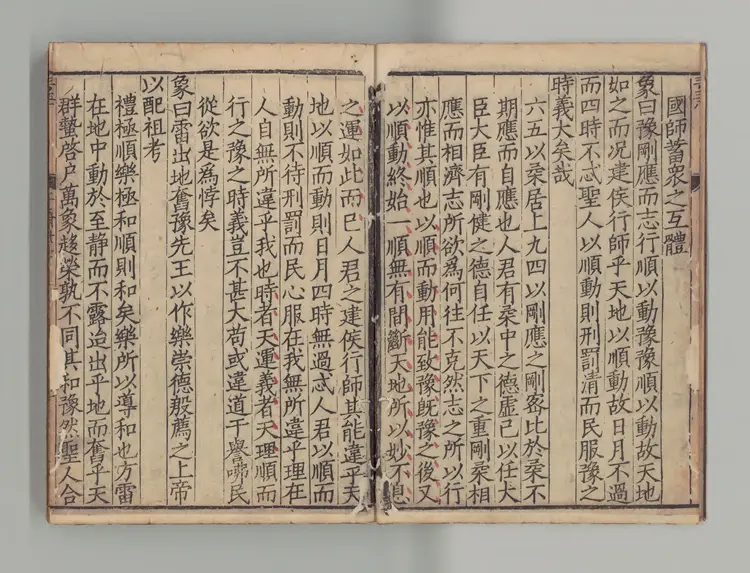 國師蓄衆之互體
彖曰豫剛應而志行順以動豫豫順以動故天地
如之而况建侯行師乎天地以順動故日月不過
而四時不忒聖人以順動則刑罰清而民服豫之
時義大矣哉
六五以柔居上九四以剛應之剛容比於柔不
期應而自應也人君有柔中之德虛己以任大
臣大臣有剛健之德自任以天下之重剛柔相
應而相濟志所欲為何往不克然志之所以行
亦惟其順也以順而動用能致豫旣豫之後又
以順動終始一順無有間斷天地所以妙不息
之運如此而已人君之建侯行師其能違乎天
地以順而動則日月四時無過忒人君以順而
動則不待刑罰而民心服在我無所違乎理在
人自無所違乎我也時者天運義者天理順而
行之豫之時義豈不甚大苟或違道干譽咈民
從欲是為悖矣
象曰雷出地奮豫先王以作樂崇德殷薦之上帝
以配祖考
禮極順樂極和順則和矣樂所以導和也方雷
在地中動於至静而不露迨出乎地而奮乎天
群蟄啓户萬象趍榮孰不同其和豫然聖人合